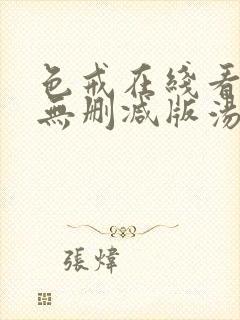 色戒在綫看
無删减版湯
張煒